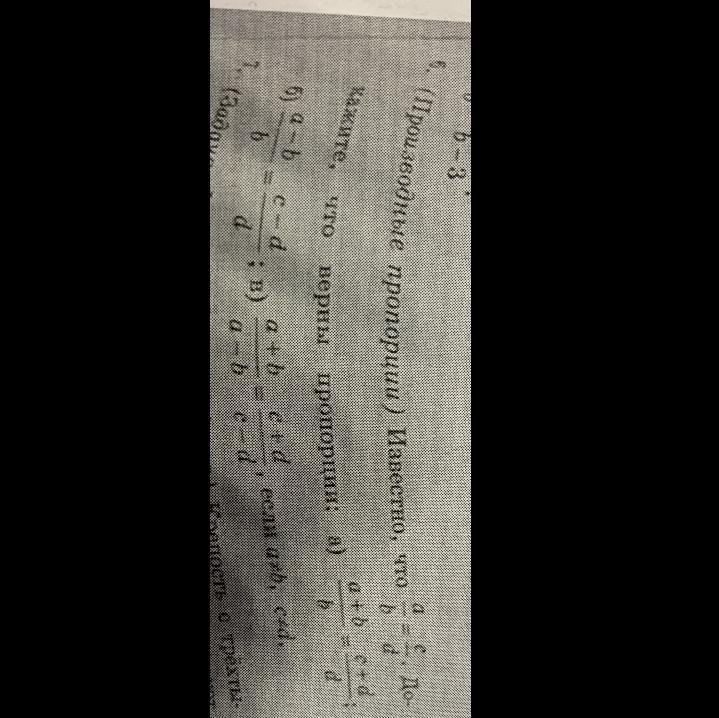 b − 3 .
6. (Производные пропорции) Известно, что a/b = c/d. До-
кажите, что верны пропорции: а) (a + b)/b = (c + d)/d ;
б) (a − b)/b = (c − d)/d ; в) (a + b)/(a − b) = (c + d)/(c − d) , если a≠b, c≠d.
7.